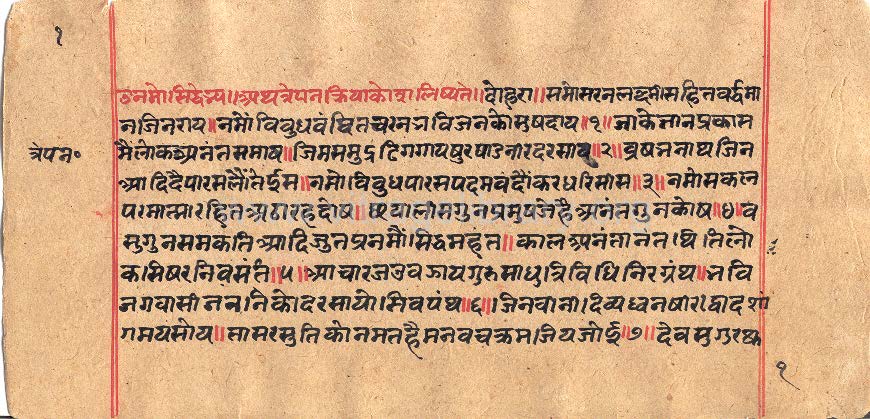 १
उनमोसिद्धेभ्य॥अथत्रेपनक्रियाकोषलिष्यते॥दोहरा॥समोसरनलछमीसहितवर्द्धमा
नजिनराय॥नमोंविबुधवंदितचरनभविजनकोसुषदाय॥१॥जाकेज्ञानप्रकास
मैलोकअनंतसमाव॥जिमसमुद्रढिगगायषुरपाउनीरदरसाव॥२॥ब्रषभनाथजिन
त्रेपन॰
आदिदैपारसलौंतेईस॥नमोविबुधपारसपदमवंदौंकरधरिसीस॥३॥नमोसकल
परमात्मारहितअठारहदोष॥छयालीसगुनप्रमुषजेहैअनंतगुनकोष॥४॥व
सुगुनसमकतिआदिजुतप्रनमौंसिद्धमहंत॥कालअनंतानंतथितिलो
कसिषरनिवसंत॥५॥आचारजउवझायगुरुसाधुत्रिविधिनिरग्रंथ॥भवि
नगवासीजननिकोदरसायोसिवपंथ॥६॥जिनवानीदिव्यध्वनषीरद्वादशां
गमयसोय॥तासरसुतिकोनमतहैमनवचक्रमजियजोई॥७॥देवसुगुरश्रु
१